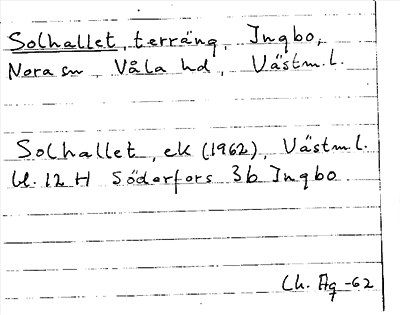 Solhallet, terräng, Ingbo,
Nora sn, Våla hd, Västm.l.
Solhallet, ek (1962), Västm.l.
bl. 12 H Söderfors 3b Ingbo.
Ch. Ag -62